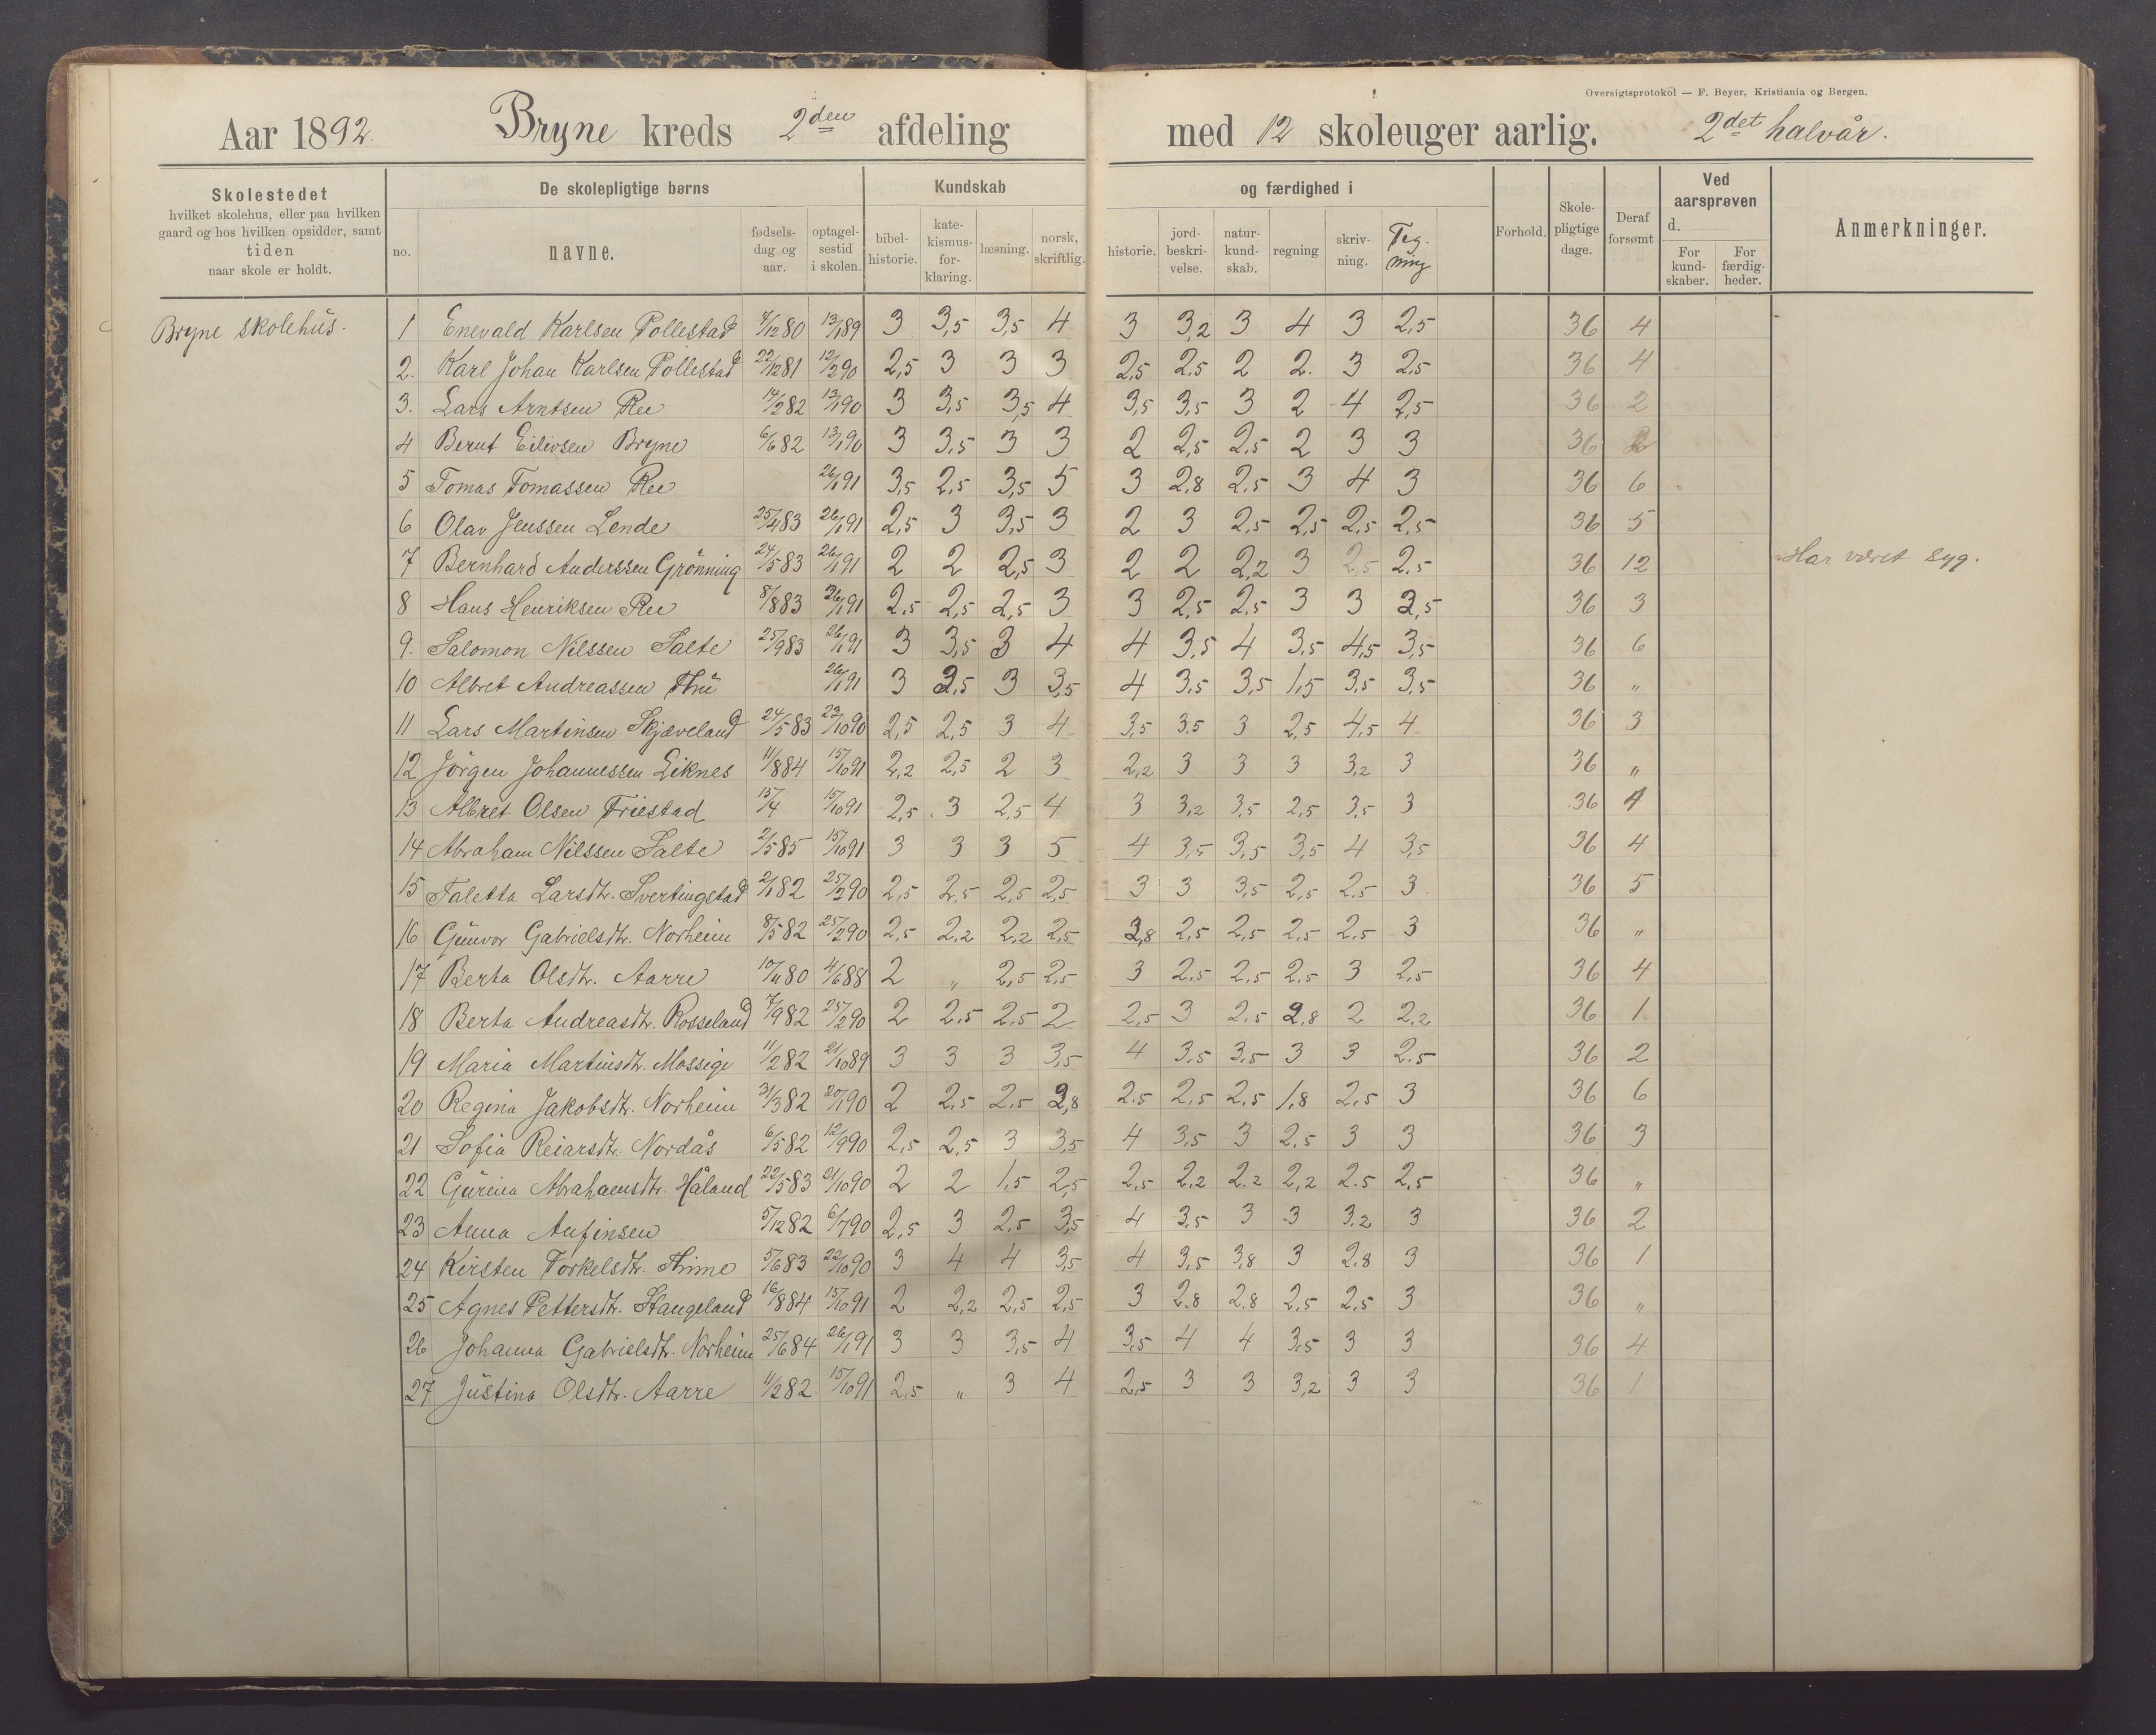 Oversigtsprotokol — F. Beyer, Kristiania og Bergen.
Aar 1892. Bryne kreds 2den afdeling med 12 skoleuger aarlig. 2det halvår.
Skolestedet
hvilket skolehus, eller paa hvilken
gaard og hos hvilken opsidder, samt
tiden
naar skole er holdt.
De skolepligtige børns
no.
navne.
fødsels-
dag og
aar.
optagel-
sestid
i skolen.
Kundskab
bibel-
historie.
kate-
kismus-
for-
klaring.
læsning.
norsk,
skriftlig.
og færdighed i
historie.
jord-
beskri-
velse.
natur-
kund-
skab.
regning
skriv-
ning.
Teg-
ning
Forhold.
Skole-
pligtige
dage.
Deraf
forsømt
Ved
aarsprøven
d.
For
kund-
skaber.
For
færdig-
heder.
Anmerkninger.
Bryne skolehus.
1 Enevald Karlsen Pollestad 7/12 80 13/1 89 3 3,5 3,5 4 3 3,2 3 4 3 2,5 36 4
2. Karl Johan Karlsen Pollestad 22/12 81 12/2 90 2,5 3 3 3 2,5 2.5 2 2. 3 2.5 36 4
3. Lars Arntsen Ree 14/2 82 13/1 90 3 3,5 3,5 4 3,5 3,5 3 2 4 2,5 36 2
4 Bernt Eilivsen Bryne 6/6 82 13/1 90 3 3,5 3 3 2 2,5 2.5 2 3 3 36 2
5 Tomas Tomassen Ree 26/1 91 3,5 2,5 3,5 5 3 2,8 2.5 3 4 3 36 6
6 Olav Jenssen Lende 25/4 83 26/1 91 2,5 3 3,5 3 2 3 2,5 2,5 2,5 2,5 36 5
7 Bernhard Anderssen Grönning 24/5 83 26/1 91 2 2 2,5 3 2 2 2,2 3 2,5 2.5 36 12 Har været syg.
8 Hans Henriksen Ree 8/8 83 26/1 91 2,5 2,5 2,5 3 3 2,5 2.5 3 3 2,5 36 3
9. Salomon Nilssen Salte 25/9 83 26/1 91 3 3,5 3 4 4 3,5 4 3,5 4,5 3,5 36 6
10 Albret Andreassen Thu 26/1 91 3 3,5 3 3,5 4 3,5 3,5 1,5 3,5 3,5 36 "
11 Lars Martinsen Skjæveland 24/5 83 22/10 90 2,5 2,5 3 4 3,5 3.5 3 2,5 4,5 4 36 3
12 Jörgen Johannessen Liknes 11/8 84 15/10 91 2,2 2,5 2 3 2,2 3 3 3 3,2 3 36 "
13 Albret Olsen Friestad 15/4 15/10 91 2,5 3 2,5 4 3 3,2 3,5 2,5 3,5 3 36 4
14 Abraham Nilssen Salte 2/5 85 15/10 91 3 3 3 5 4 3,5 3,5 3,5 4 3,5 36 4
15 Taletta Larsdtr. Svertingstad 2/1 82 25/2 90 2,5 2,5 2,5 2,5 3 3 3,5 2,5 2.5 3 36 5
16 Gunvor Gabrielsdtr. Norheim 8/5 82 25/2 90 2,5 2,2 2,2 2,5 2,8 2,5 2,5 2,5 2.5 3 36 "
17 Berta Olsdtr. Aarre 10/11 80 4/6 88 2 " 2,5 2,5 3 2,5 2,5 2,5 3 2,5 36 4
18 Berta Andreasdtr. Rosseland 7/9 82 25/2 90 2 2,5 2,5 2 2,5 3 2.5 2,8 2 2,2 36 1
19 Maria Martinsdtr. Mossige 11/2 82 21/10 89 3 3 3 3,5 4 3,5 3,5 3 3 2.5 36 2
20 Regina Jakobsdtr. Norheim 31/3 82 20/1 90 2 2,5 2,5 2,8 2.5 2,5 2,5 1,8 2.5 3 36 6
21 Sofia Reiarsdtr. Nordås 6/5 82 12/9 90 2,5 2,5 3 3,5 4 3,5 3 2,5 3 3 36 3
22 Gurina Abrahamsdtr. Håland 22/5 83 21/10 90 2 2 1,5 2,5 2,5 2,2 2,2 2,2 2.5 2,5 36 "
23 Anna Anfinsen 5/12 82 6/7 90 2,5 3 2,5 3,5 4 3,5 3 3 3,2 3 36 2
24 Kirsten Torkelsdtr. Thime 5/6 83 22/10 90 3 4 4 3,5 4 3,5 3,8 3 2.8 3 36 1
25 Agnes Pettersdtr. Stangeland 16/8 84 15/10 91 2 2,2 2,5 2,5 3 2,8 2,8 2,5 2,5 3 36 "
26 Johanna Gabrielsdtr. Norheim 25/6 84 26/1 91 3 3 3,5 4 3,5 4 4 3,5 3 3 36 4
27 Justina Olsdtr. Aarre 11/2 82 15/10 91 2,5 " 3 4 2,5 3 3 3,2 3 3 36 1